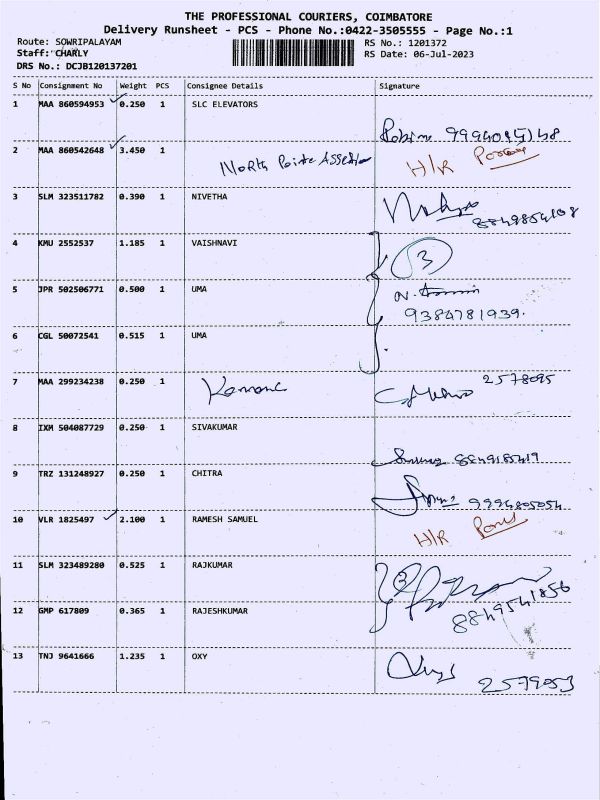 THE PROFESSIONAL COURIERS, COIMBATORE
Delivery Runsheet - PCS - Phone No.:0422-3505555 - Page No.:1
Route: SOWRIPALAYAM RS No.: 1201372
Staff: CHARLY RS Date: 06-Jul-2023
DRS No.: DCJB120137201
S No Consignment No Weight PCS Consignee Details Signature
1 MAA 860594953 0.250 1 SLC ELEVATORS
2 MAA 860542648 3.450 1 North H/R
3 SLM 323511782 0.390 1 NIVETHA
4 KMU 2552537 1.185 1 VAISHNAVI 3
5 JPR 502506771 0.500 1 UMA
9384781939.
6 CGL 50072541 0.515 1 UMA
7 MAA 299234238 0.250 1 2578095
8 IXM 504087729 0.250 1 SIVAKUMAR
9 TRZ 131248927 0.250 1 CHITRA
9994805054
10 VLR 1825497 2.100 1 RAMESH SAMUEL H/R
11 SLM 323489280 0.525 1 RAJKUMAR 2
12 GMP 617809 0.365 1 RAJESHKUMAR
13 TNJ 9641666 1.235 1 OXY
2579053